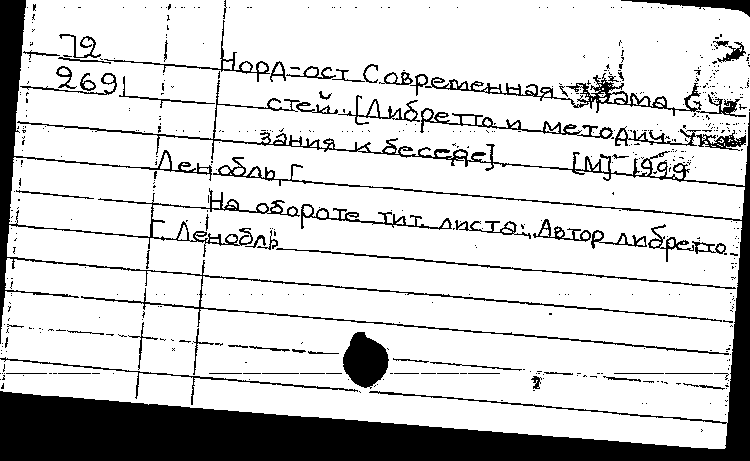 72
2691
Норд-ост Современная драма, 6 ча
стей.. [Либретто и методич. ука
зания к беседе]. [М]. 1999
Ленобль, Г.
На обороте тит. листа: Автор либретто
Г. Ленобль